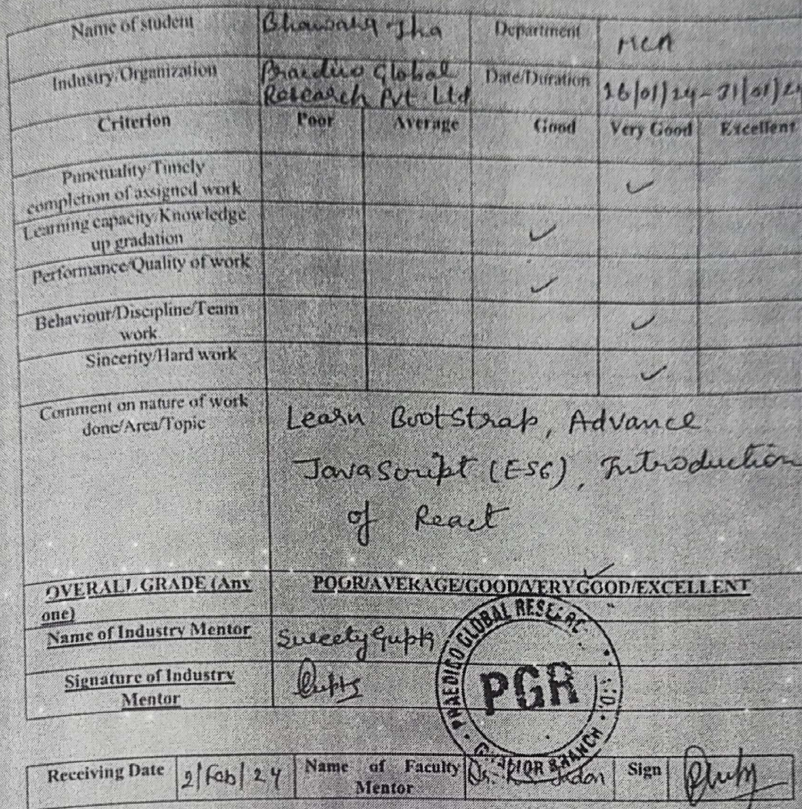 Name of student Bhawana Jha Department MCA
Industry/Organization Praedico Global Research Pvt. Ltd Date/Duration 16/01/24-31/01/24
Criterion Poor Average Good Very Good Excellent
Punctuality/Timely
completion of assigned work ✓
Learning capacity/Knowledge
up gradation ✓
Performance/Quality of work ✓
Behaviour/Discipline/Team
work ✓
Sincerity/Hard work ✓
Comment on nature of work
done/Area/Topic
Learn BootStrap, Advance
JavaScript (ES6), Introduction
of React
OVERALL GRADE (Any
one) POOR/AVERAGE/GOOD/VERY GOOD/EXCELLENT ✓
Name of Industry Mentor Sweety Gupta
Signature of Industry
Mentor Gupta
PRAEDICO GLOBAL RESEARC
PGR
Receiving Date 2/Feb/24 Name of Faculty
Mentor Dr. Sign